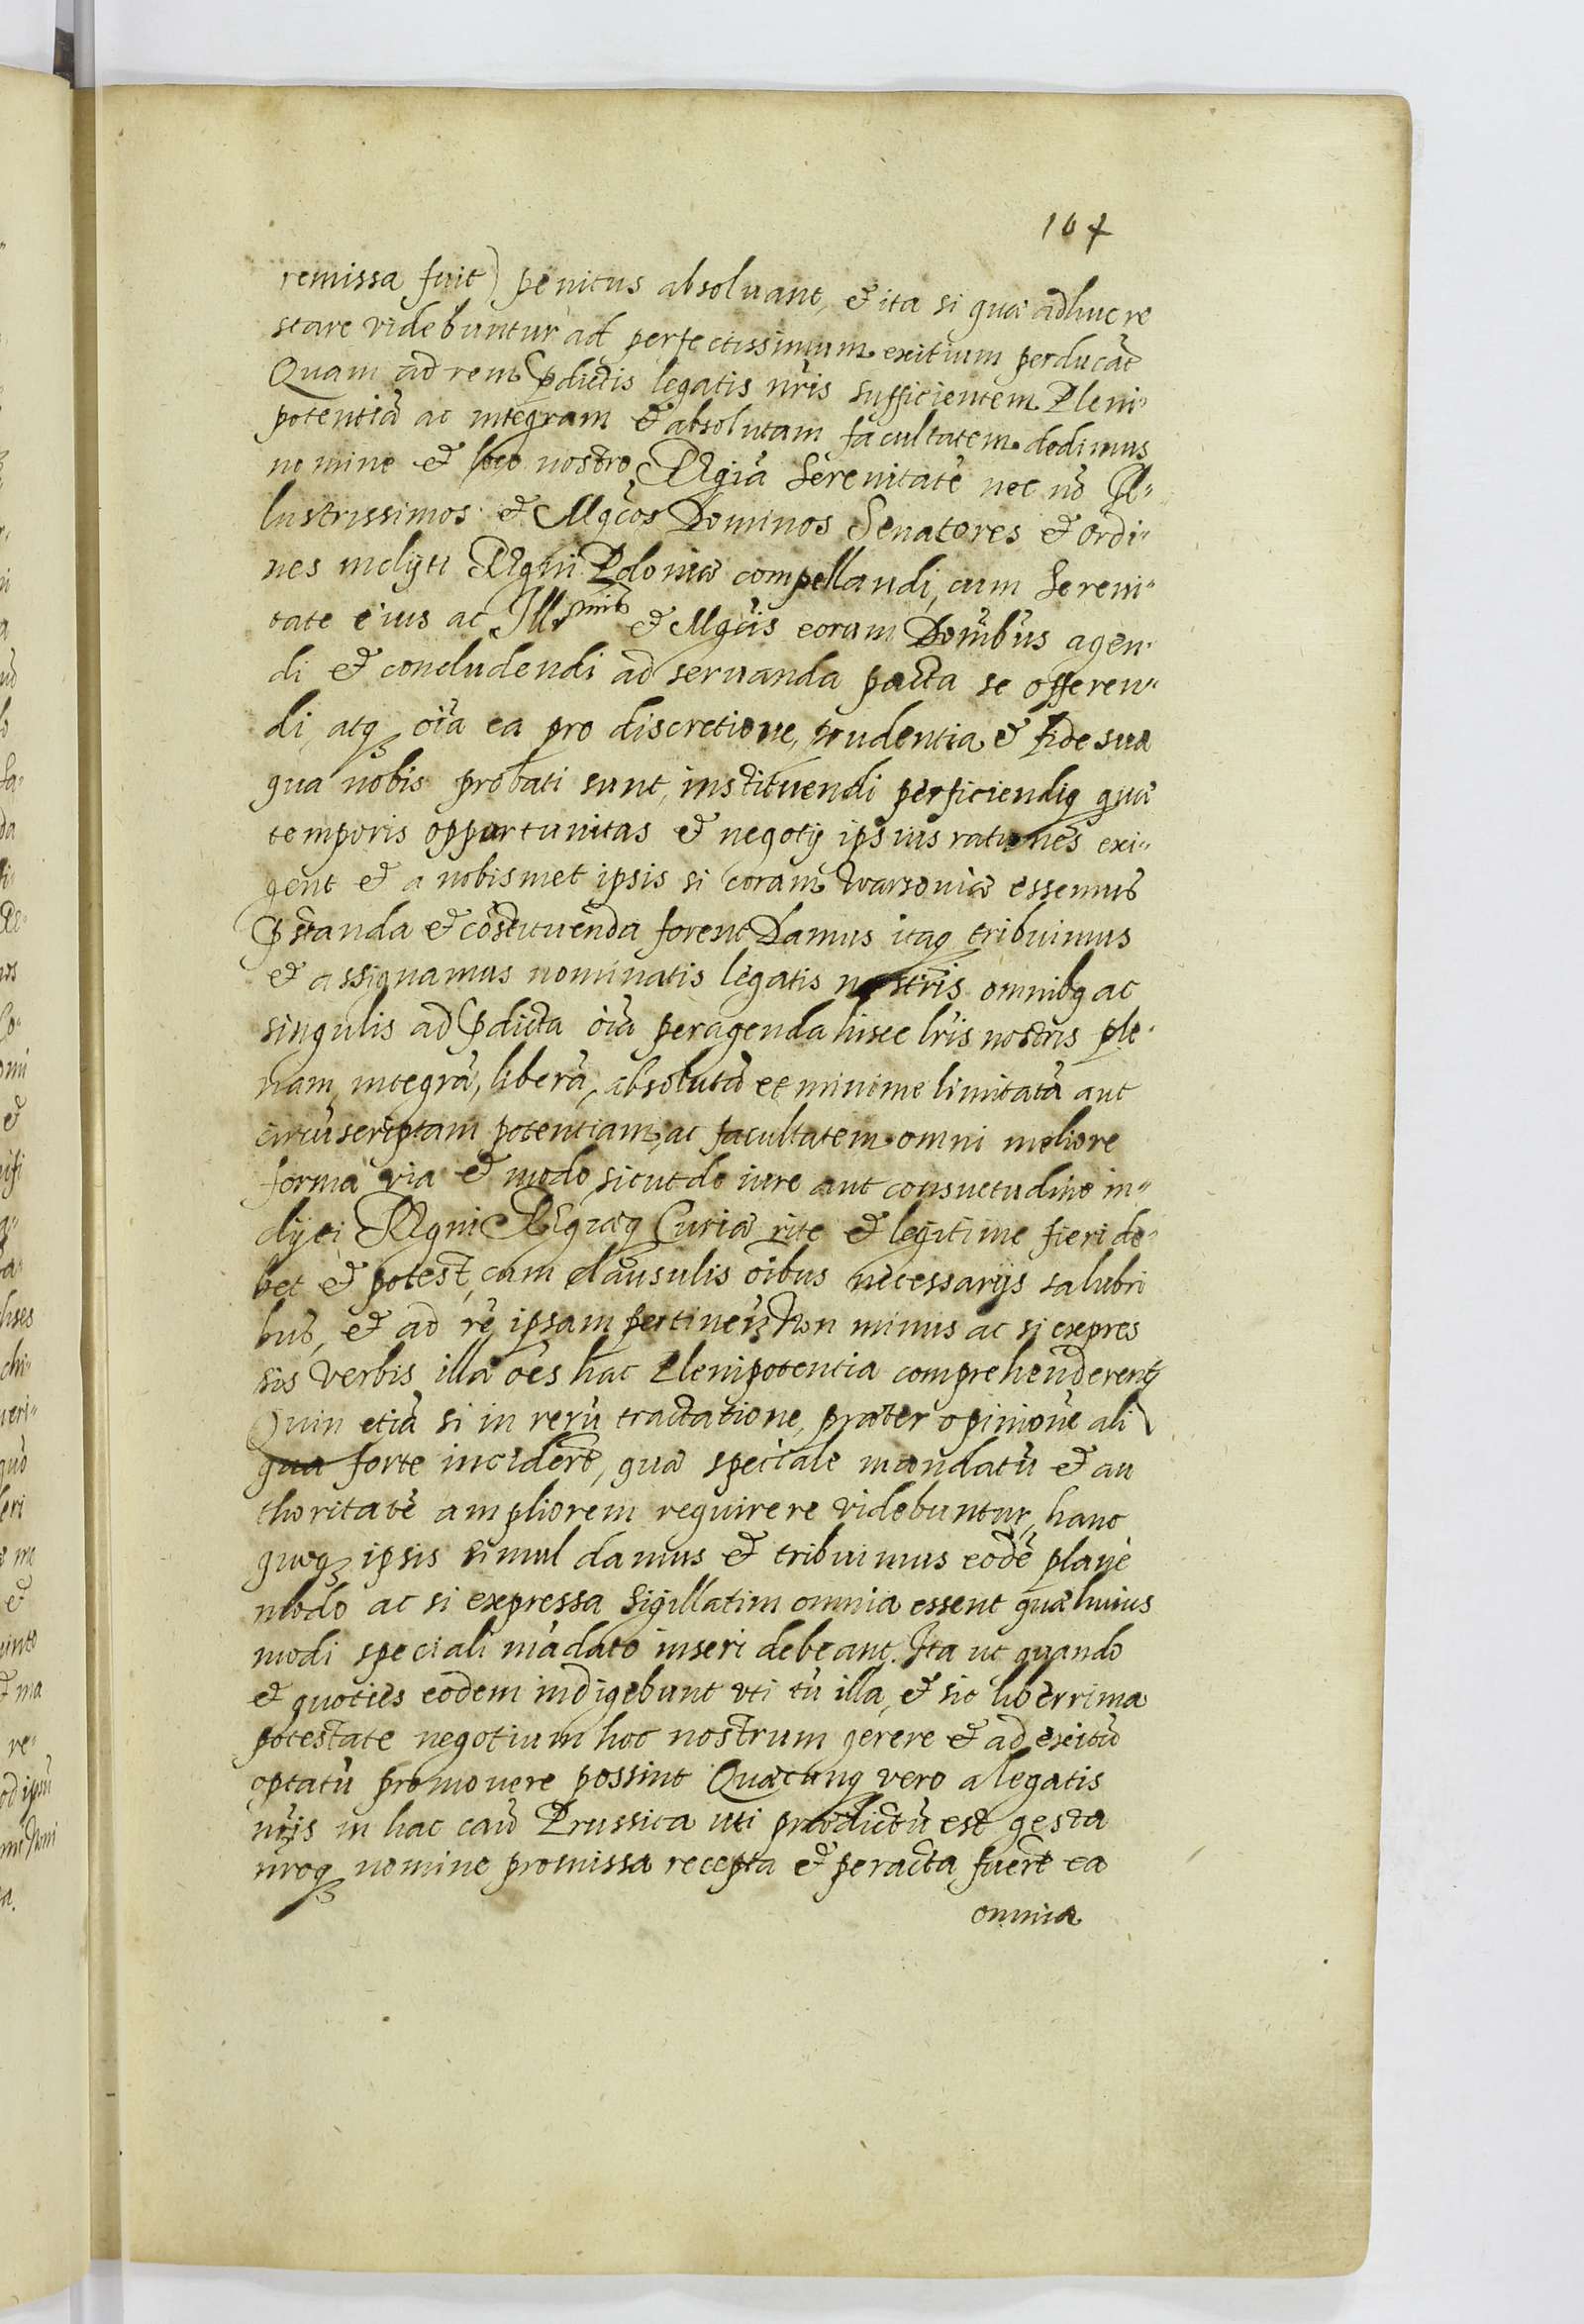 107
remissa fuit) penitus absoluant, & ita si quæ adhuc re
stare videbuntur ad perfectissimum exitium perducāt
Quam ad rem p̄dictis legatis nr̄is sufficientem Pleni-
potentiā ac integram & absolutam facultatem dedimus
nomine & loco nostro Regiā Serenitatē nec nō Il-
lustrissimos & Mgcos Dominos Senatores & ordi-
nes inclyti Regni Poloniæ compellandi, cum Sereni-
tate eius ac Ill.smis & Mgcīs eorum Dom̄bus agen-
di & concludendi ad seruanda pacta se offeren-
di, atq, oīa ea pro discretione, prudentia & fide sua
qua nobis probati sunt, instituendi perficiendiq quæ
temporis opportunitas & negotij ipsius rationes exi-
gent & a nobismet ipsis si coram Warsouiæ essemus
p̄standa & cōstituenda forent Damus itaq tribuimus
& assignamus nominatis legatis nostris omnibq ac
singulis ad p̄dicta oīa peragenda hisce lr̄is nostris ple-
nam, integrā, liberā, absolutā et minime limitatā aut
circūscriptam potentiam, ac facultatem omni meliore
forma via & modo, sicut de iure aut consuetudine in-
clyti Regni Regiæq Curiæ rite & legitime fieri de-
bet & potest, cum clausulis oībus necessarijs salubri
bus, & ad rē ipsam pertinen; Non minus ac si expres
sis verbis illa oēs hac Plenipotentia comprehenderent
Quin etiā si in rerū tractatione, præter opinionē ali
qua forte inciderēt, quæ speciale mandatū & au
thoritatē ampliorem requirere videbuntur, hanc
quoq ipsis simul damus & tribuimus eodē planè
modo ac si expressa sigillatim omnia essent quæ huius
modi speciali mādato inseri debeant. Ita ut quando
& quoties eodem indigebunt vti tū illa, & sic liberrima
potestate negotium hoc nostrum gerere & ad exitū
optatū promouere possint Quæcunq vero a legatis
nr̄is in hac cau͞a Prussica uti prædictū est gesta
nr̄oq nomine promissa recepta & peracta fuerēt ea
omnia